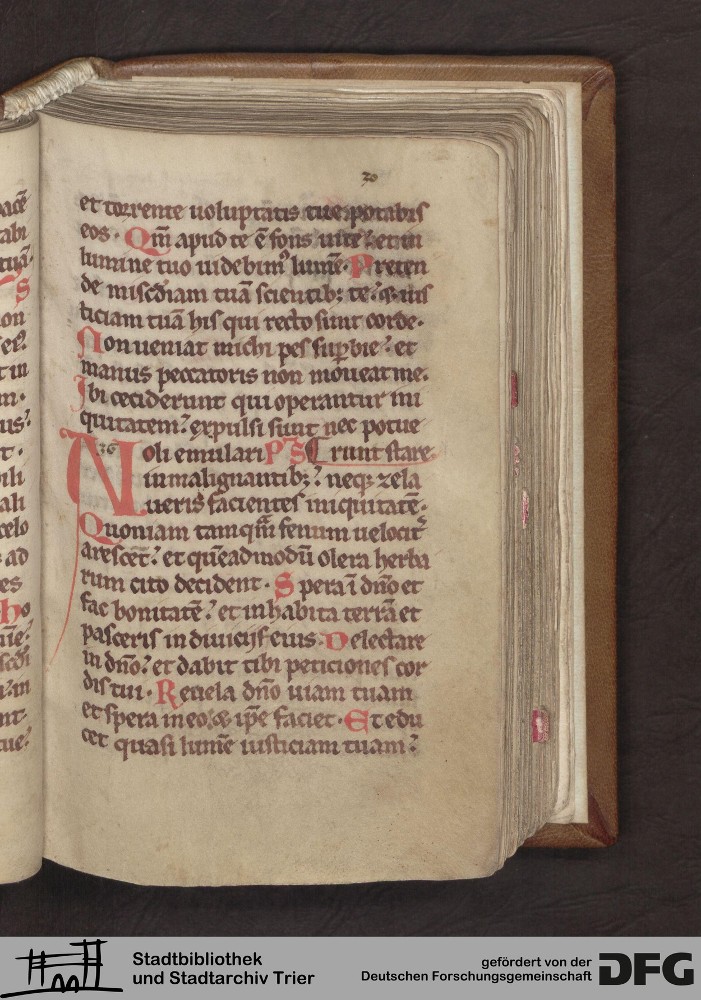 30
et torrente uoluptatis tue potabis
eos. Qm̄ apud te ē fons uite et in
lumine tuo uidebimꝰ lumē. Preten
de miscd̄iam tuā scientibꝫ te: ⁊ ius
ticiam tuā his qui recto sunt corde.
Non ueniat michi pes suꝑbie: et
manus peccatoris non moueat me.
Ibi ceciderunt qui operantur ini
quitatem: expulsi sunt nec potue
36
Noli emulari P̄S runt stare
in malignantibꝫ: neqꝫ zela
ueris facientes iniquitatē.
Quoniam tamqm̄ fenum uelocit̄
arescēt: et quēadmodū olera herba
rum cito decident. Spera ī dn̄o et
fac bonitatē: et inhabita terrā et
pasceris in diuicijs eius. Delectare
in dn̄o: et dabit tibi peticiones cor
dis tui. Reuela dn̄o uiam tuam
et spera in eo: ip̄e faciet. Et edu
cet quasi lumē iusticiam tuam:
Stadtbibliothek
und Stadtarchiv Trier
gefördert von der
Deutschen Forschungsgemeinschaft DFG